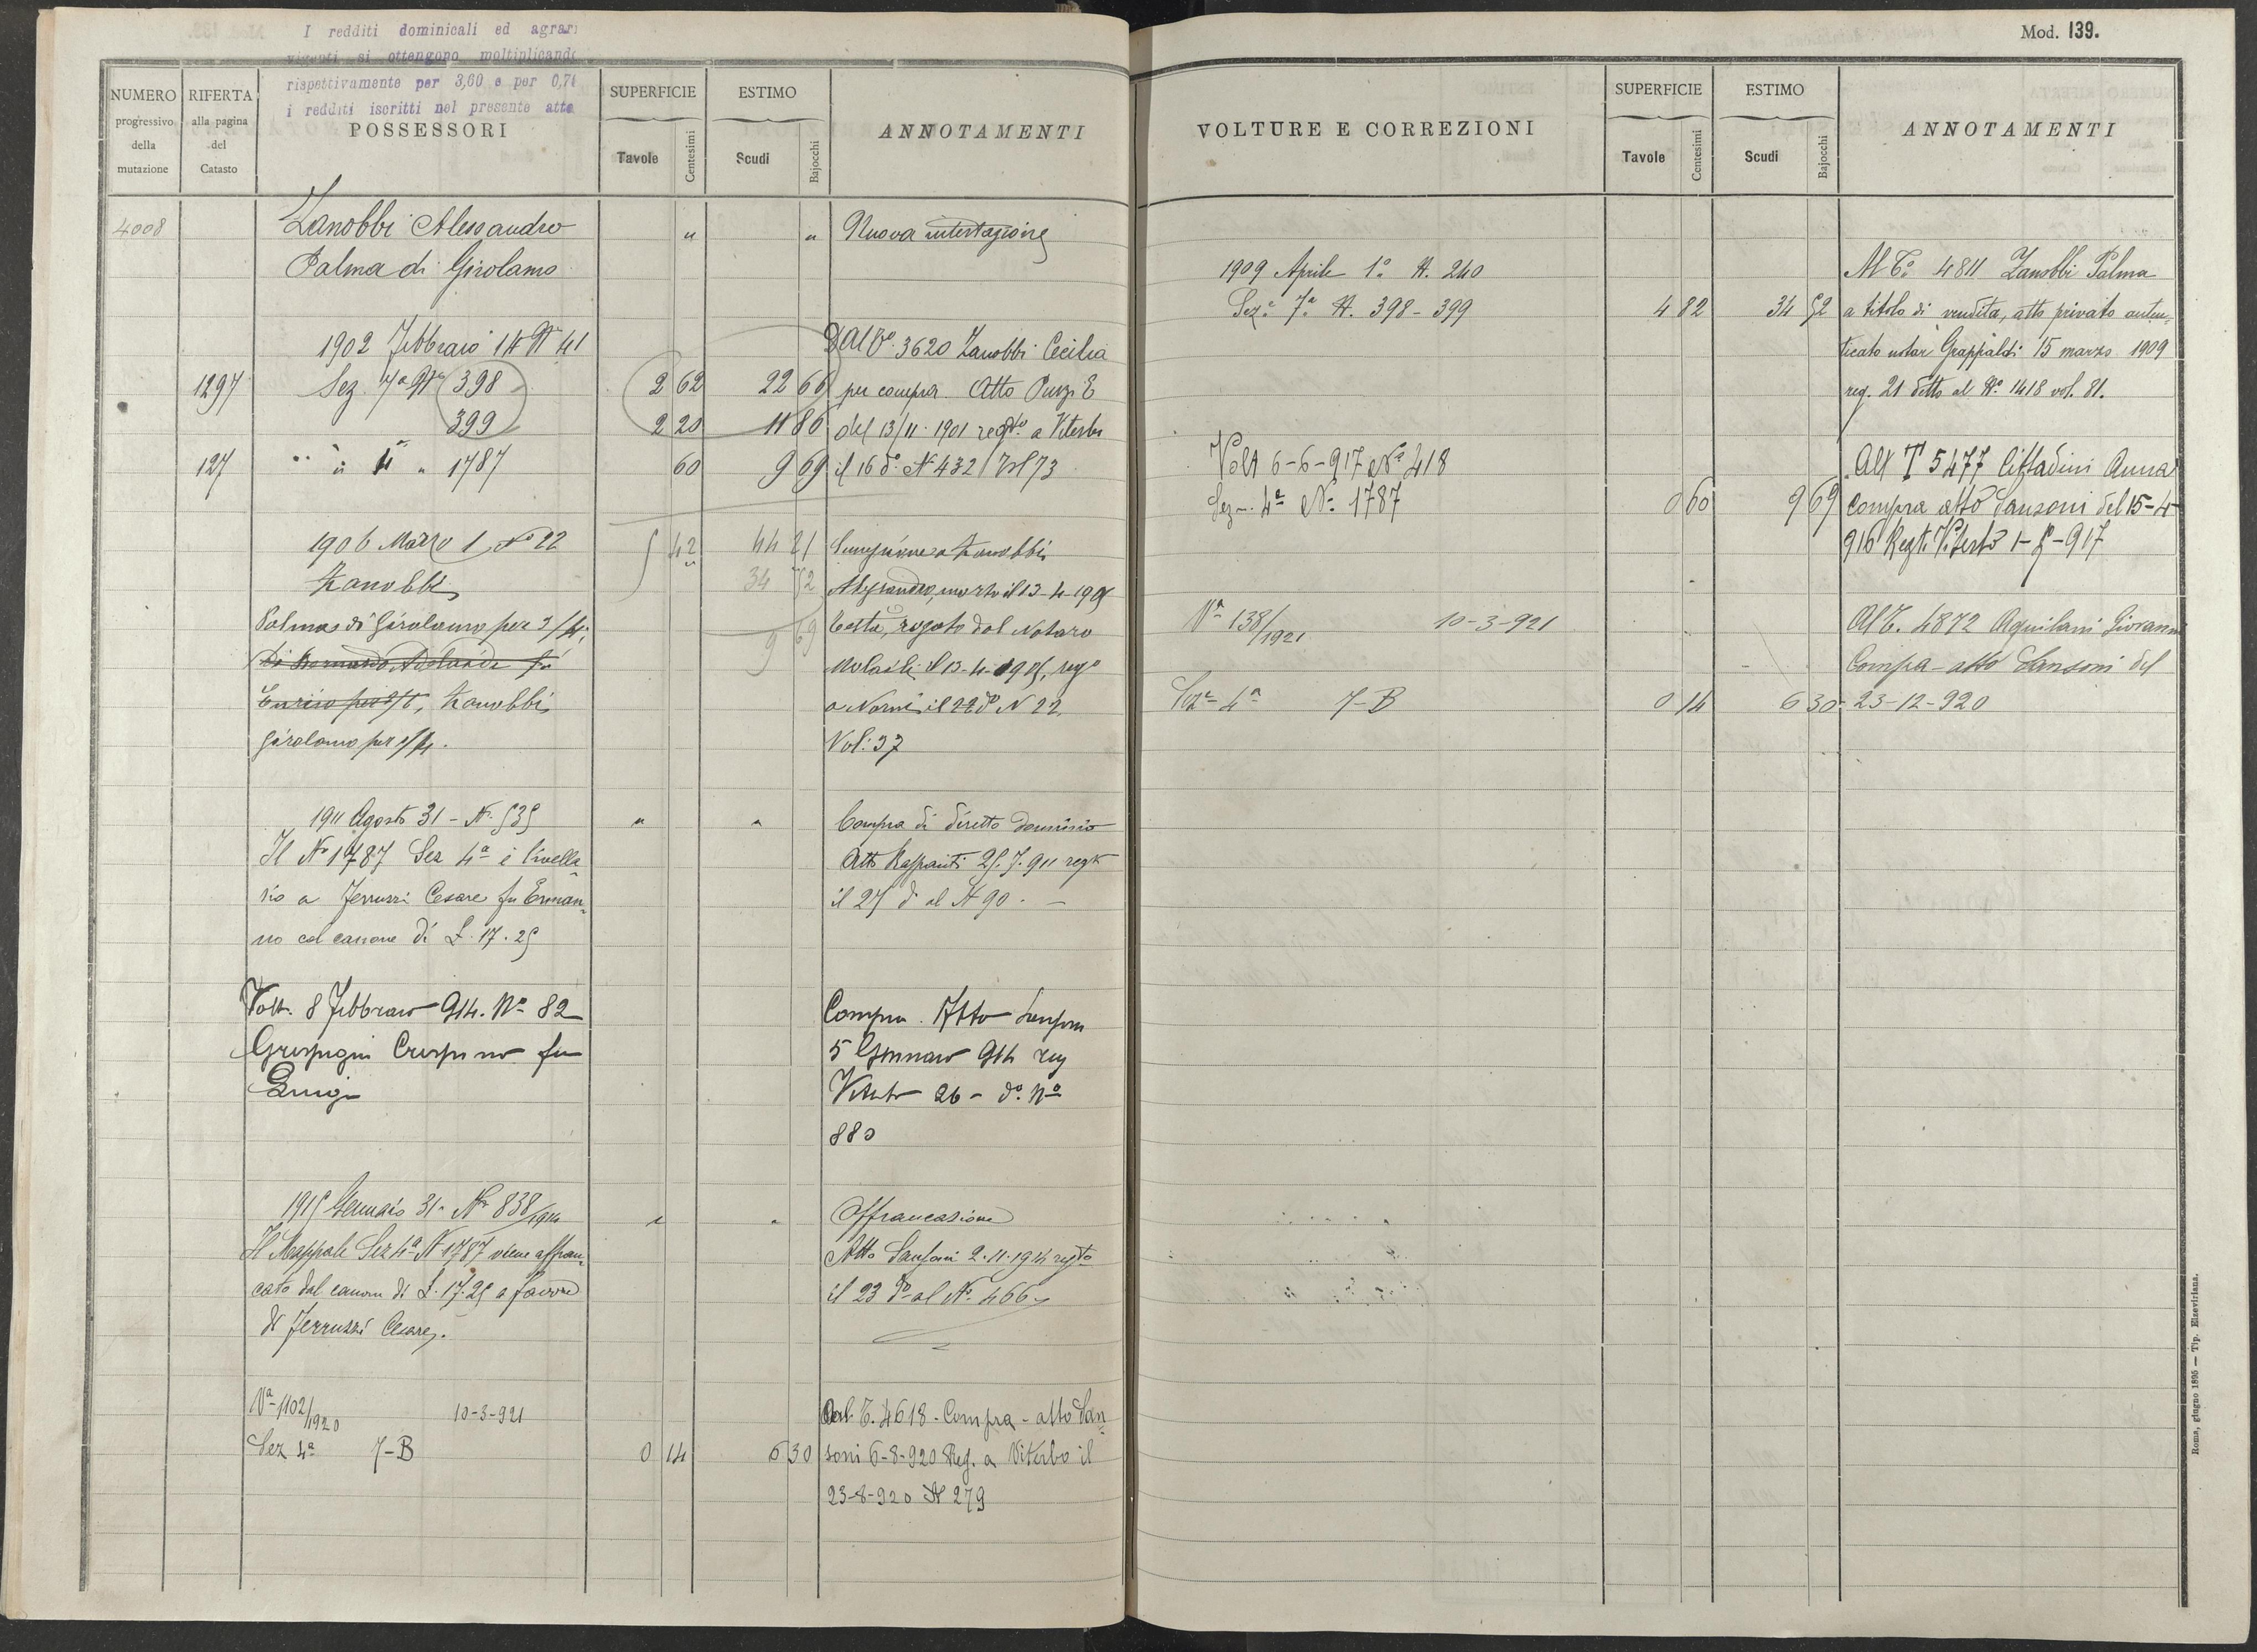 I redditi dominicali ed agrari
vigenti si ottengono moltiplicando
rispettivamente per 3,60 e per 0,7
i redditi iscritti nel presente atto
NUMERO progressivo della mutazione
RIFERTA alla pagina del Catasto
POSSESSORI
SUPERFICIE
Tavole Centesimi
ESTIMO
Scudi Bajocchi
ANNOTAMENTI
4008 Zanobbi Alessandro " " Nuova intestazione
Palma di Girolamo
1902 Febbraio 14 N° 41 Dal T° 3620 Zanobbi Cecilia
1297 Sez. 7a N° 398 2 62 22 66 per compra Atto
399 2 20 11 86 del 13/11 1901 regto a Viterbo
127 " " 4 " 1787 60 9 69 il 16 do N 432 Vol 73
1906 Marzo 1 No 22 5 42 44 21 Zanobbi
Zanobbi 34 52 Alessandro, morto il 13-4-1905
Palma di Girolamo per 3/4, 9 69 Testo, rogato dal Notaro
Di Bernardo Adelaide fu il 13-4-1905, rego
Zanobbi a Narni il 22 do N 22
Girolamo per 1/4. Vol: 37
1911 Agosto 31 - N. 535 " " Compra di diretto dominio
Il No 1787 Sez 4a è livella= Atto 25.7.911 regto
rio a Ferruzzi Cesare fu Erman= il 27 do al N 90. -
no col canone di L. 17.25
Volt. 8 Febbraio 914. No 82 Compra. Atto Sansoni
Crispino fu 5 Gennaio 914 reg
Luigi Viterbo 26 - do. No
880
1915 Gennaio 31 - No 838/1914 " " Affrancazione
Il Mappale Sez 4a N 1787 viene affran= Atto Sansoni 2.11.1914 regto
cato dal canone di L. 17.25 a favore il 23 do al No 466
di Ferruzzi Cesare.
Va 1102/1920 10-3-921 Dal T. 4618 - Compra - atto San=
Sez 4a 7-B 0 14 6 30 soni 6-8-920 Reg. a Viterbo il
23-8-920 N 279
Mod. 139.
VOLTURE E CORREZIONI
SUPERFICIE
Tavole Centesimi
ESTIMO
Scudi Bajocchi
ANNOTAMENTI
1909 Aprile 1° N. 240 Al To 4811 Zanobbi Palma
Sez.e 7a N. 398 - 399 4 82 34 52 a titolo di vendita, atto privato auten=
ticato notar Grappaldi 15 marzo 1909
reg. 21 detto al No 1418 vol. 81.
Volt 6-6-917 No 418 Al T 5477 Cittadini Anna
Sez. 4a No 1787 0 60 9 69 Compra atto Sansoni del 15-4-
916 Regt. Viterbo 1-5-917
Va 138/1921 10-3-921 Al T. 4872 Aquilani Giovanni
Compra - atto Sansoni del
Seze 4a 7-B 0 14 6 30 23-12-920
Roma, giugno 1895 — Tip. Elzeviriana.